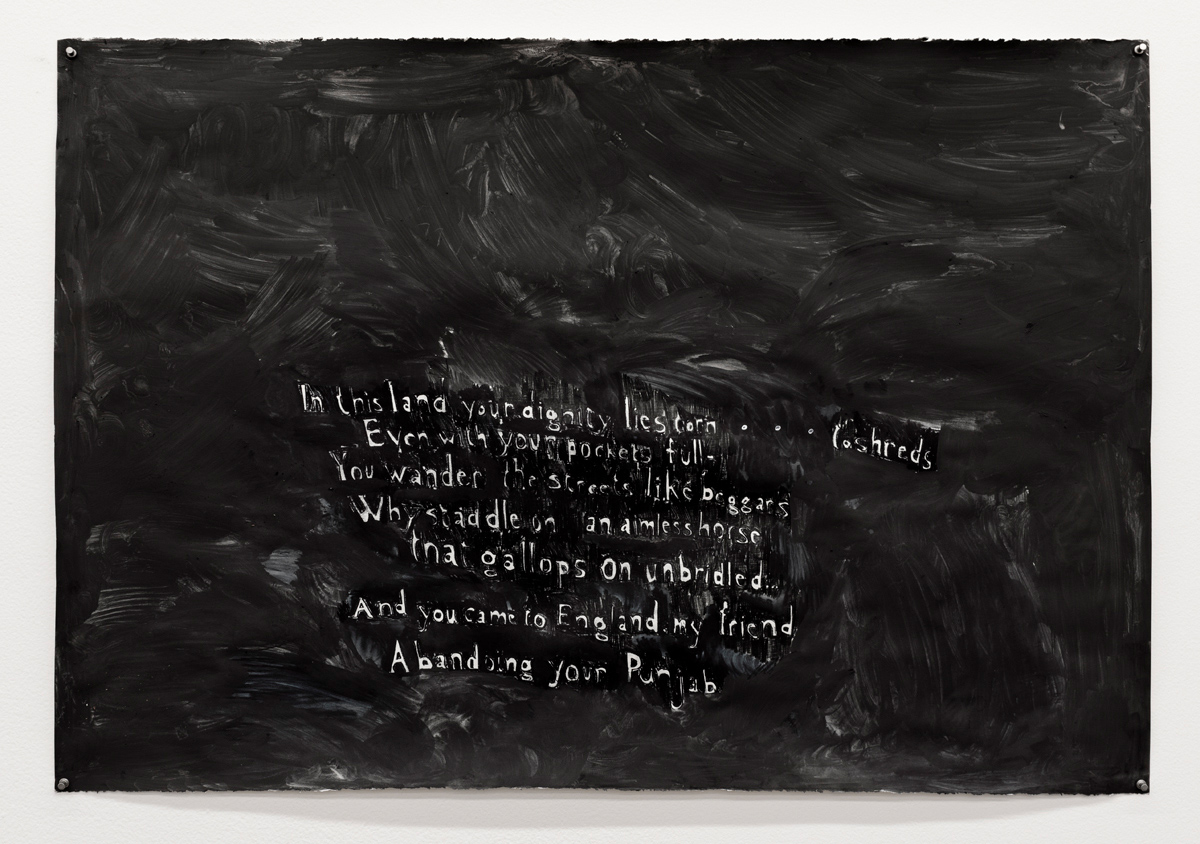 In this land your dignity lies torn . . . to shreds
Even with your pockets full-
You wander the streets like beggars
Why staddle on an aimless horse
that gallops on unbridled...
And you came to England, my friend
Abandoing your Punjab